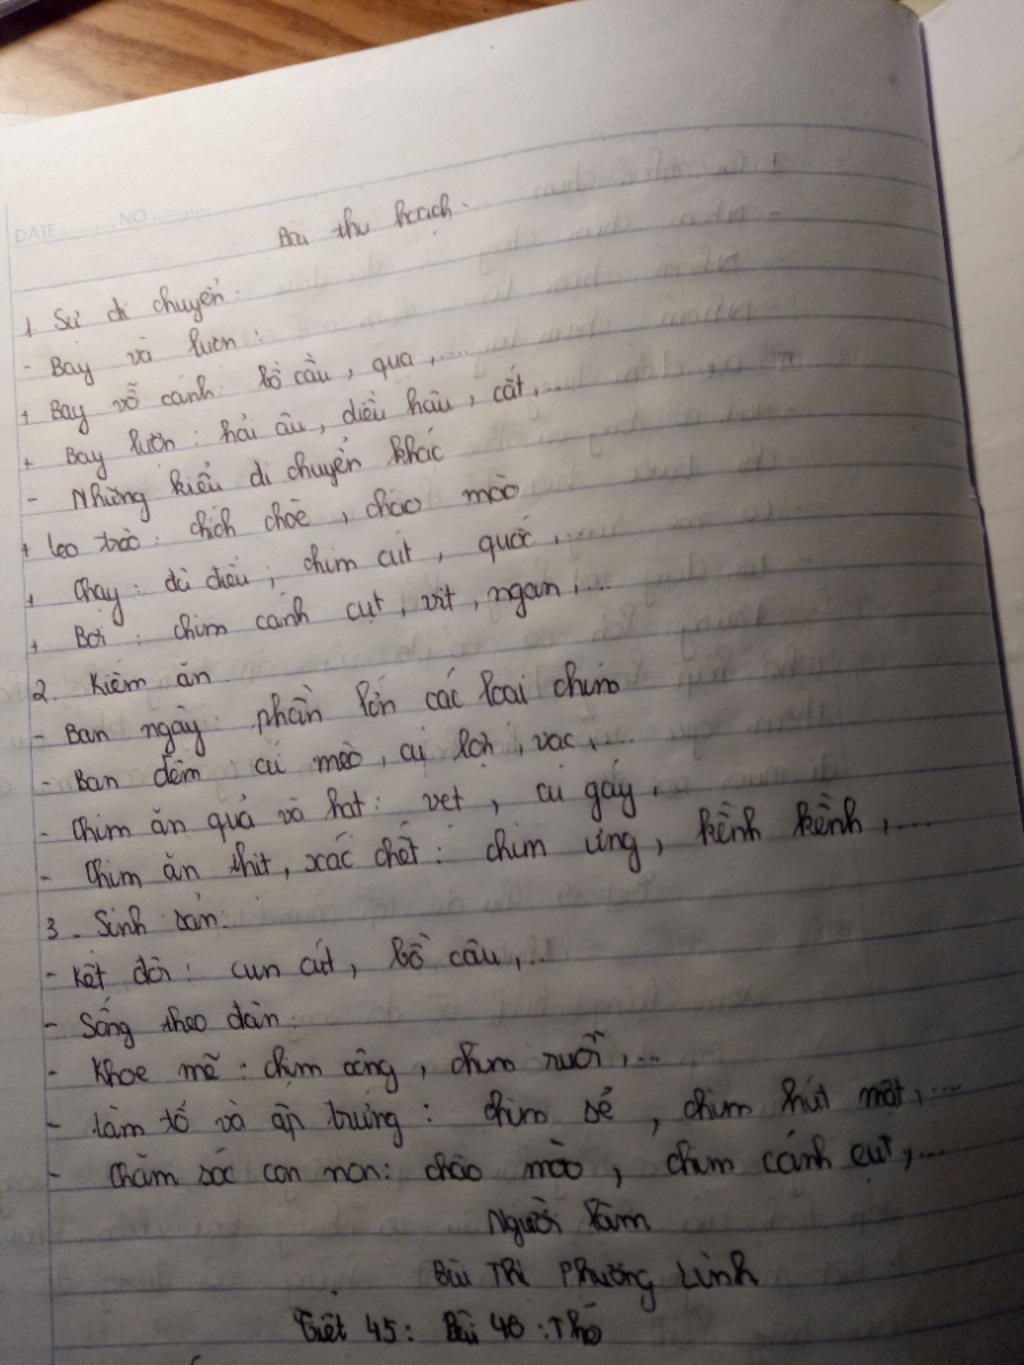 DATE ............ NO ............
Bài thu hoạch.
1 Sự di chuyển:
- Bay và lượn:
+ Bay vỗ cánh: bồ câu, quạ,.....
+ Bay lượn: hải âu, diều hâu, cắt,...
- Những kiểu di chuyển khác
+ leo trèo: chích chòe, chào mào
+ Chạy: đà điểu; chim cút, quốc,...
+ Bơi: chim cánh cụt, vịt, ngan,...
2. Kiếm ăn.
- Ban ngày: phần lớn các loài chim
- Ban đêm: cú mèo, cú lợn, vạc,...
- Chim ăn quả và hạt: vẹt, cu gáy.
- Chim ăn thịt, xác chết: chim ưng, kền kền,...
3. Sinh sản.
- Kết đôi: cun cút, bồ câu,...
- Sống theo đàn.
- Khoe mẽ: chim công, chim ruồi,...
- Làm tổ và ấp trứng: chim sẻ, chim hút mật,...
- Chăm sóc con non: chào mào, chim cánh cụt,...
Người làm
Bùi Thị Phương Linh
Tiết 45: Bài 46: Thỏ